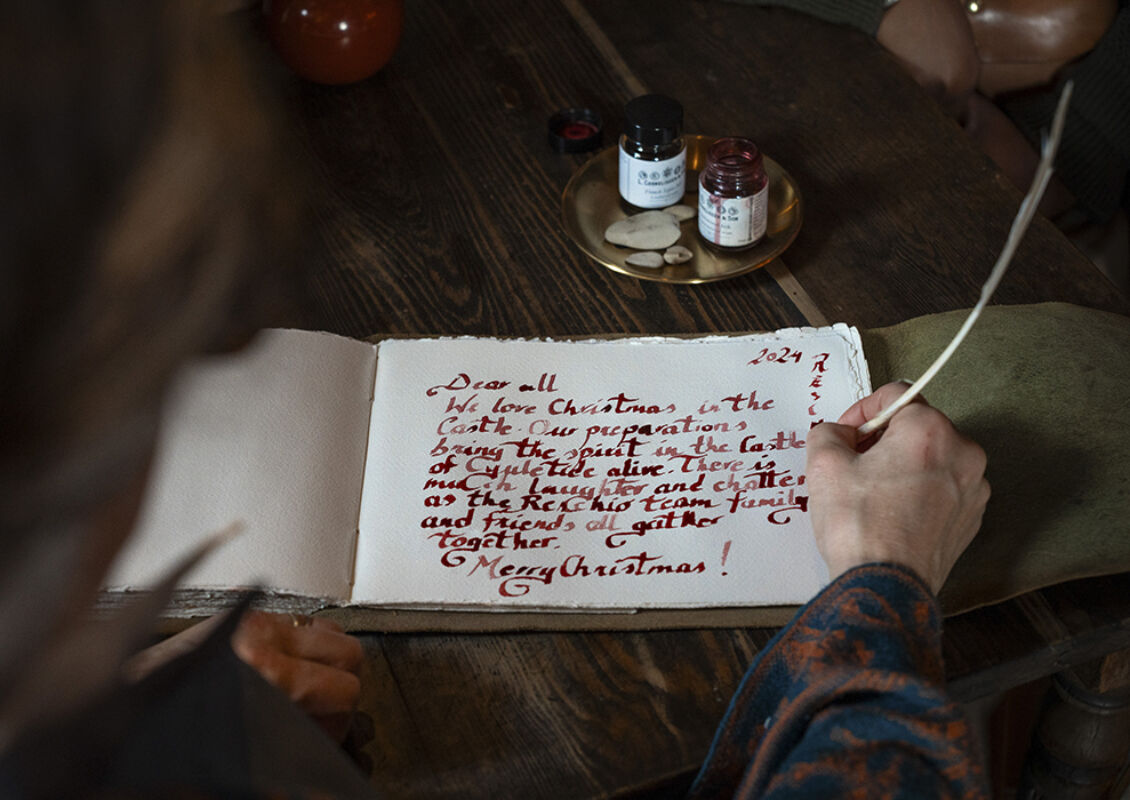 2024
RESC
Dear all
We love Christmas in the
Castle. Our preparations
bring the spirit in the Castle
of Yuletide alive. There is
much laughter and chatter
as the Reschio team family
and friends all gather
together.
Merry Christmas !
L. CORNELISSEN & SON